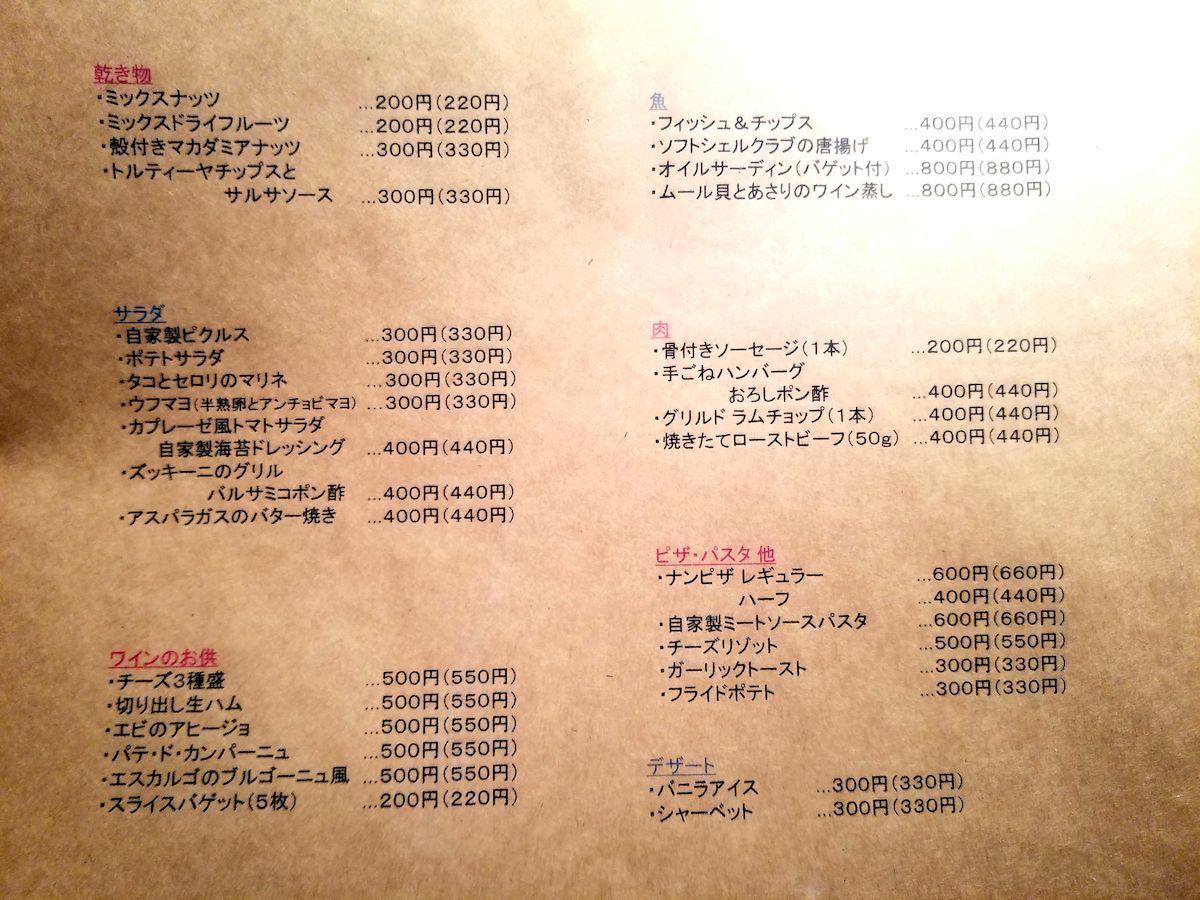 乾き物
・ミックスナッツ …200円(220円)
・ミックスドライフルーツ …200円(220円)
・殻付きマカダミアナッツ …300円(330円)
・トルティーヤチップスと
サルサソース …300円(330円)
サラダ
・自家製ピクルス …300円(330円)
・ポテトサラダ …300円(330円)
・タコとセロリのマリネ …300円(330円)
・ウフマヨ(半熟卵とアンチョビマヨ) …300円(330円)
・カプレーゼ風トマトサラダ
自家製海苔ドレッシング …400円(440円)
・ズッキーニのグリル
バルサミコポン酢 …400円(440円)
・アスパラガスのバター焼き …400円(440円)
ワインのお供
・チーズ3種盛 …500円(550円)
・切り出し生ハム …500円(550円)
・エビのアヒージョ …500円(550円)
・パテ・ド・カンパーニュ …500円(550円)
・エスカルゴのブルゴーニュ風 …500円(550円)
・スライスバゲット(5枚) …200円(220円)
魚
・フィッシュ&チップス …400円(440円)
・ソフトシェルクラブの唐揚げ …400円(440円)
・オイルサーディン(バゲット付) …800円(880円)
・ムール貝とあさりのワイン蒸し …800円(880円)
肉
・骨付きソーセージ(1本) …200円(220円)
・手ごねハンバーグ
おろしポン酢 …400円(440円)
・グリルド ラムチョップ(1本) …400円(440円)
・焼きたてローストビーフ(50g) …400円(440円)
ピザ・パスタ 他
・ナンピザ レギュラー …600円(660円)
ハーフ …400円(440円)
・自家製ミートソースパスタ …600円(660円)
・チーズリゾット …500円(550円)
・ガーリックトースト …300円(330円)
・フライドポテト …300円(330円)
デザート
・バニラアイス …300円(330円)
・シャーベット …300円(330円)